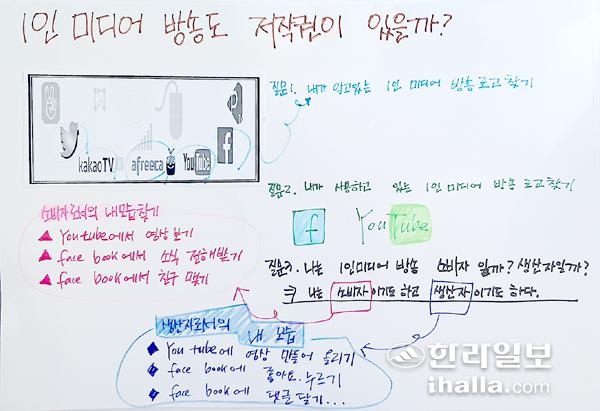 1인 미디어 방송도 저작권이 있을까?
질문1. 내가 알고있는 1인 미디어 방송 로고 찾기
kakaoTV afreeca YouTube f
질문2. 내가 사용하고 있는 1인 미디어 방송 로고찾기
f YouTube
소비자로서의 내모습찾기
▲ Youtube에서 영상 보기
▲ face book에서 소식 전해받기
▲ face book에서 친구 맺기
질문3. 나는 1인미디어 방송 소비자 일까? 생산자일까?
⇒ 나는 소비자 이기도 하고 생산자 이기도 하다.
생산자로서의 내 모습
◆ You tube에 영상 만들어 올리기
◆ face book에 좋아요. 누르기
◆ face book에 댓글 달기...
한라일보
ihalla.com